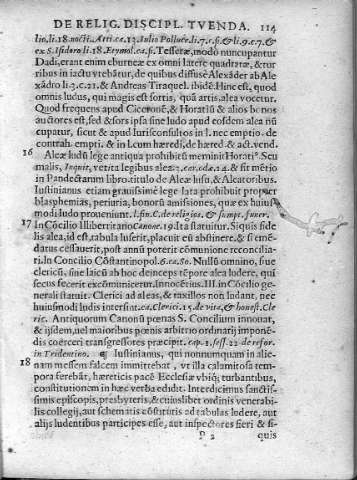 DE RELIG. DISCIPL. TVENDA. 114
lio, li. 18. noct. Atti. ca. 13. Iulio Polluce. li. 7. c. & li. 9. c. 7. &
ex S. Isidoro li. 18. Etymol. ca. Tesseræ, modò nuncupantur
Dadi, erant enim eburneæ ex omni latere quadratæ, & tur
ribus in iactu vtebātur, de quibus diffusè Alexāder ab Ale
xādro li. 3. c. 21. & Andreas Tiraquel. ibidē. Hinc est, quod
omnis ludus, qui magis est fortis, quā artis, alea vocetur.
Quod frequens apud Ciceronē, & Horatiū & alios bonos
auctores est, sed & fors ipsa sine ludo apud eosdem alea nū
cupatur, sicut & apud Iurisconsultos in l. nec emptio. de
contrah. empti. & in l. cum hæredi, de hæred. & act. vend.
16 Aleæ ludū lege antiqua prohibitū meminit Horati⁹. Seu
malis, Inquit, vetita legibus alea. & sit mētio
in Pandectarum libro. titulo de Aleæ lusu, & Aleatoribus.
Iustinianus etiam grauissimè lege lata prohibuit propter
blasphemias, periuria, bonorū amissiones, quæ ex huius
modi ludo proueniunt. l. fin. C. de religios. & sumpt. funer.
17 In Cōcilio Illibertitario Canone. 79. Ita statuitur. Siquis fide
lis alea, id est, tabula luserit, placuit eū abstinere, & si emē
datus cessauerit, post annū poterit cōmunione reconcilia-
ri. In Concilio Cōstantinopol. 6. ca. 50. Nullū omnino, siue
clericū, siue laicū ab hoc deinceps tēpore alea ludere, qui
secus fecerit excōmunicetur. Innocētius. III. in Cōcilio ge
nerali statuit. Clerici ad aleas, & taxillos non ludant, nec
huiusmodi ludis intersint. ca. Clerici. 15. de vita, & honest. Cle
ric. Antiquorum Canonū pœnas S. Concilium innouat,
& ijsdem, vel maioribus pœnis arbitrio ordinarij imponē
dis coërceri transgressores præcipit. cap. 1. sess. 22. de refor.
in Tridentino. Iustinianus, qui nonnumquam in alie-
18 nam messem falcem immittebat, vt illa calamitosa tem
pora ferebāt, hæreticis pacē Ecclesiæ vbiq; turbantibus,
constitutionem in hæc verba edidit. Interdicimus sanctis-
simis episcopis, presbyteris, & cuiuslibet ordinis venerabi-
lis collegij, aut schematis cōstitutis ad tabulas ludere, aut
alijs ludentibus participes esse, aut inspectores fieri & si-
P 2 quis